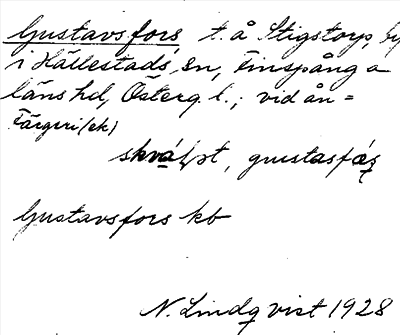 Gustavsfors t. å Stigstorp, by
i Hällestads sn, Finspång a
läns hd, Österg. l.; vid ån =
Färgeri (ek)
skvál pt, gustasfǽs
Gustavsfors kb
N. Lindqvist 1928